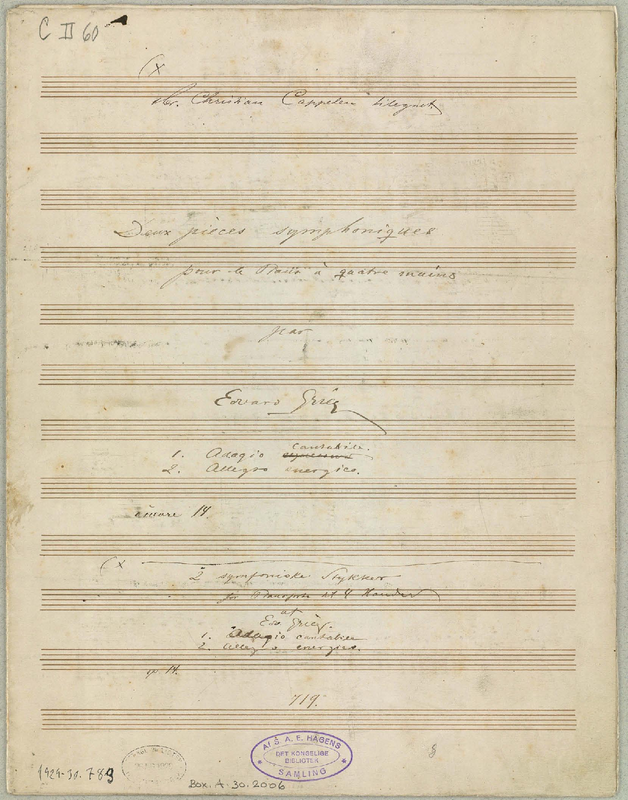 C II 60
(x
Hr. Christian Cappelen tilegnet
Deux pièces symphoniques
pour le Piano à quatre mains
par
Edvard Grieg
1. Adagio cantabile.
2. Allegro energico.
oeuvre 14.
(x
2 symfoniske Stykker
for Pianoforte at 4 Hænder
af
Edv. Grieg.
1. Adagio cantabile
2. Allegro energico.
op. 14.
719.
AF S. A. E. HAGENS
DET KONGELIGE
BIBLIOTEK
SAMLING
1929-30. 789
Box. A 30.2006